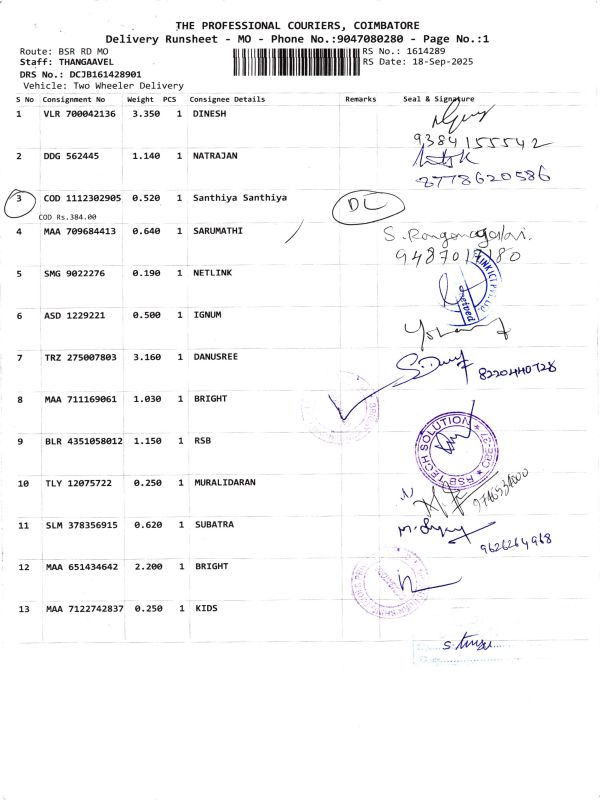 THE PROFESSIONAL COURIERS, COIMBATORE
Delivery Runsheet - MO - Phone No.:9047080280 - Page No.:1
Route: BSR RD MO RS No.: 1614289
Staff: THANGAAVEL RS Date: 18-Sep-2025
DRS No.: DCJB161428901
Vehicle: Two Wheeler Delivery
S No Consignment No Weight PCS Consignee Details Remarks Seal & Signature
1 VLR 700042136 3.350 1 DINESH
9384155542
2 DDG 562445 1.140 1 NATRAJAN
8778620586
3 COD 1112302905 0.520 1 Santhiya Santhiya DL
COD Rs.384.00
4 MAA 709684413 0.640 1 SARUMATHI
5 SMG 9022276 0.190 1 NETLINK
6 ASD 1229221 0.500 1 IGNUM
7 TRZ 275007803 3.160 1 DANUSREE
8220440728
8 MAA 711169061 1.030 1 BRIGHT
9 BLR 4351058012 1.150 1 RSB
RSB TECH SOLUTION
10 TLY 12075722 0.250 1 MURALIDARAN
11 SLM 378356915 0.620 1 SUBATRA
9626264968
12 MAA 651434642 2.200 1 BRIGHT
13 MAA 7122742837 0.250 1 KIDS